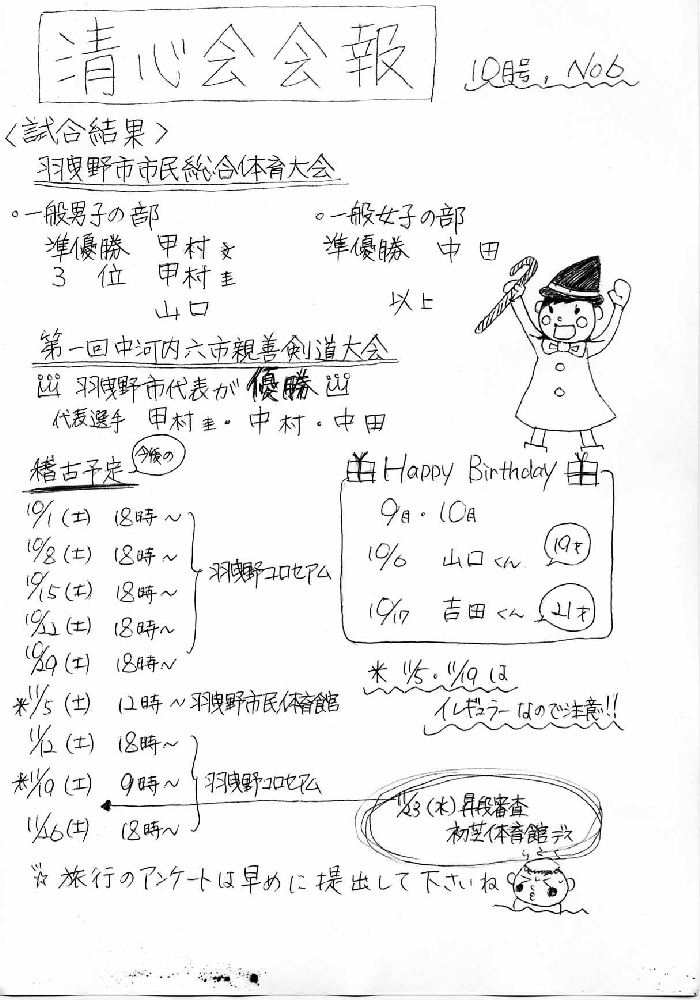 清心会会報
10月号, No6
〈試合結果〉
羽曳野市市民総合体育大会
○一般男子の部
準優勝 甲村文
3 位 甲村圭
山口
○一般女子の部
準優勝 中田
以上
第一回中河内六市親善剣道大会
羽曳野市代表が優勝
代表選手 甲村圭・中村・中田
稽古予定 今後の
10/1(土) 18時~
10/8(土) 18時~
10/15(土) 18時~
10/22(土) 18時~
10/29(土) 18時~
羽曳野コロセアム
※11/5(土) 12時~羽曳野市民体育館
11/12(土) 18時~
※11/19(土) 9時~
11/26(土) 18時~
羽曳野コロセアム
Happy Birthday
9月・10月
10/6 山口くん 19才
10/17 吉田くん 21才
※ 11/5・11/19は
イレギュラーなので注意!!
11/23(水)昇段審査
初芝体育館デス
☆旅行のアンケートは早めに提出して下さいね